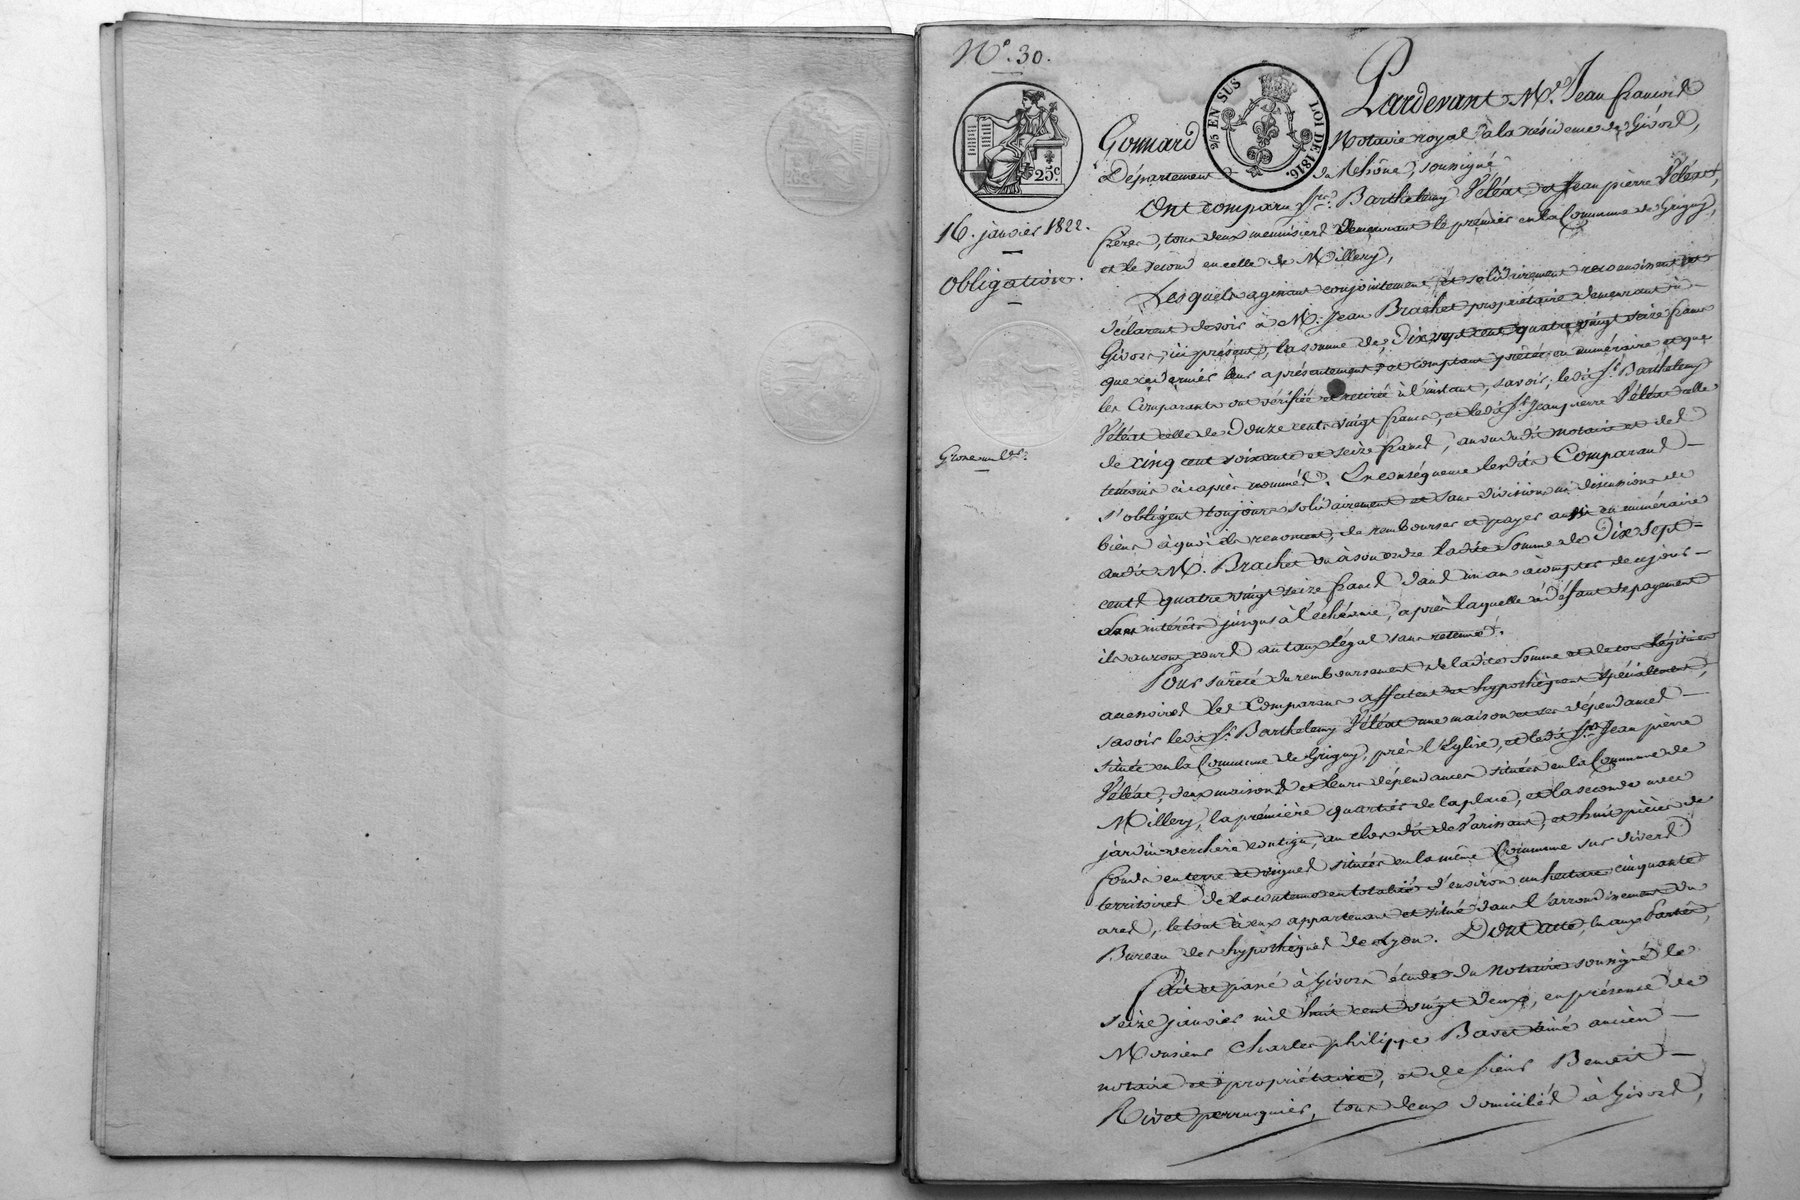 N°. 30.
25 EN SUS
LOI DE 1816.
25.c
16. janvier 1822.
Obligation.
Grosse un
Pardevant Me. Jean françois
Gonnard Notaire royal à la résidence de Givors,
Département du Rhône, soussigné
Ont comparu Srs. Barthelemy Véléat et Jean pierre Véléat,
frères, tous deux menuisiers demeurant le premier en la Commune de Grigny,
et le second en celle de Millery,
Lesquels agissant conjointement et solidairement reconnaissent et
déclarent devoir à M. Jean Brachet propriétaire demeurant à
Givors, ici présent, la somme de Dix sept cent quatre vingt seize francs
que ce dernier leur a présentement et comptant prêtée en numéraire et que
les Comparants ont vérifiée et retirée à l'instant, savoir; ledit Sr. Barthelemy
Véléat celle de Douze cent vingt francs, et ledit Sr. Jean pierre Véléat celle
de cinq cent soixante et seize francs, au vu dudit notaire et des
témoins ci après nommés. En conséquence lesdits Comparans
s'obligent toujours solidairement et sans division ni discussion de
biens à quoi ils renoncent, de rembourser et payer aussi en numéraire
audit M. Brachet ou à son ordre ladite Somme de Dix Sept
cents quatre vingt seize francs dans un an à compter de ce jour
sans intérêts jusqu'à l'échéance, après laquelle à défaut de payement
ils auront cours au taux légal sans retenue.
Pour sureté du remboursement de ladite Somme et de tous légitimes
accessoires les Comparans affectent et hypothèquent spécialement,
savoir ledit Sr. Barthelemy Véléat une maison et ses dépendances
située en la Commune de Grigny, près l'Eglise, et ledit Sr. Jean pierre
Véléat, deux maisons et leurs dépendances situées en la Commune de
Millery, la première quartier de la place, et la seconde avec
jardin verchère contigu, au clos dit de Varissant, et huit pièces de
fonds en terre et vignes situées en la même Commune sur divers
territoires de la contenue en totalité d'environ un hectare cinquante
ares, le tout à eux appartenant et situé dans l'arrondissement du
Bureau des hypothèques de Lyon. Dont acte, lu aux Parties,
Fait et passé à Givors étude du Notaire soussigné le
seize janvier mil huit cent vingt deux, en présence de
Monsieur Charles philippe Bavet ainé ancien
notaire et propriétaire, et de sieur Benoit
Rivet perruquier, tous deux domiciliés à Givors,